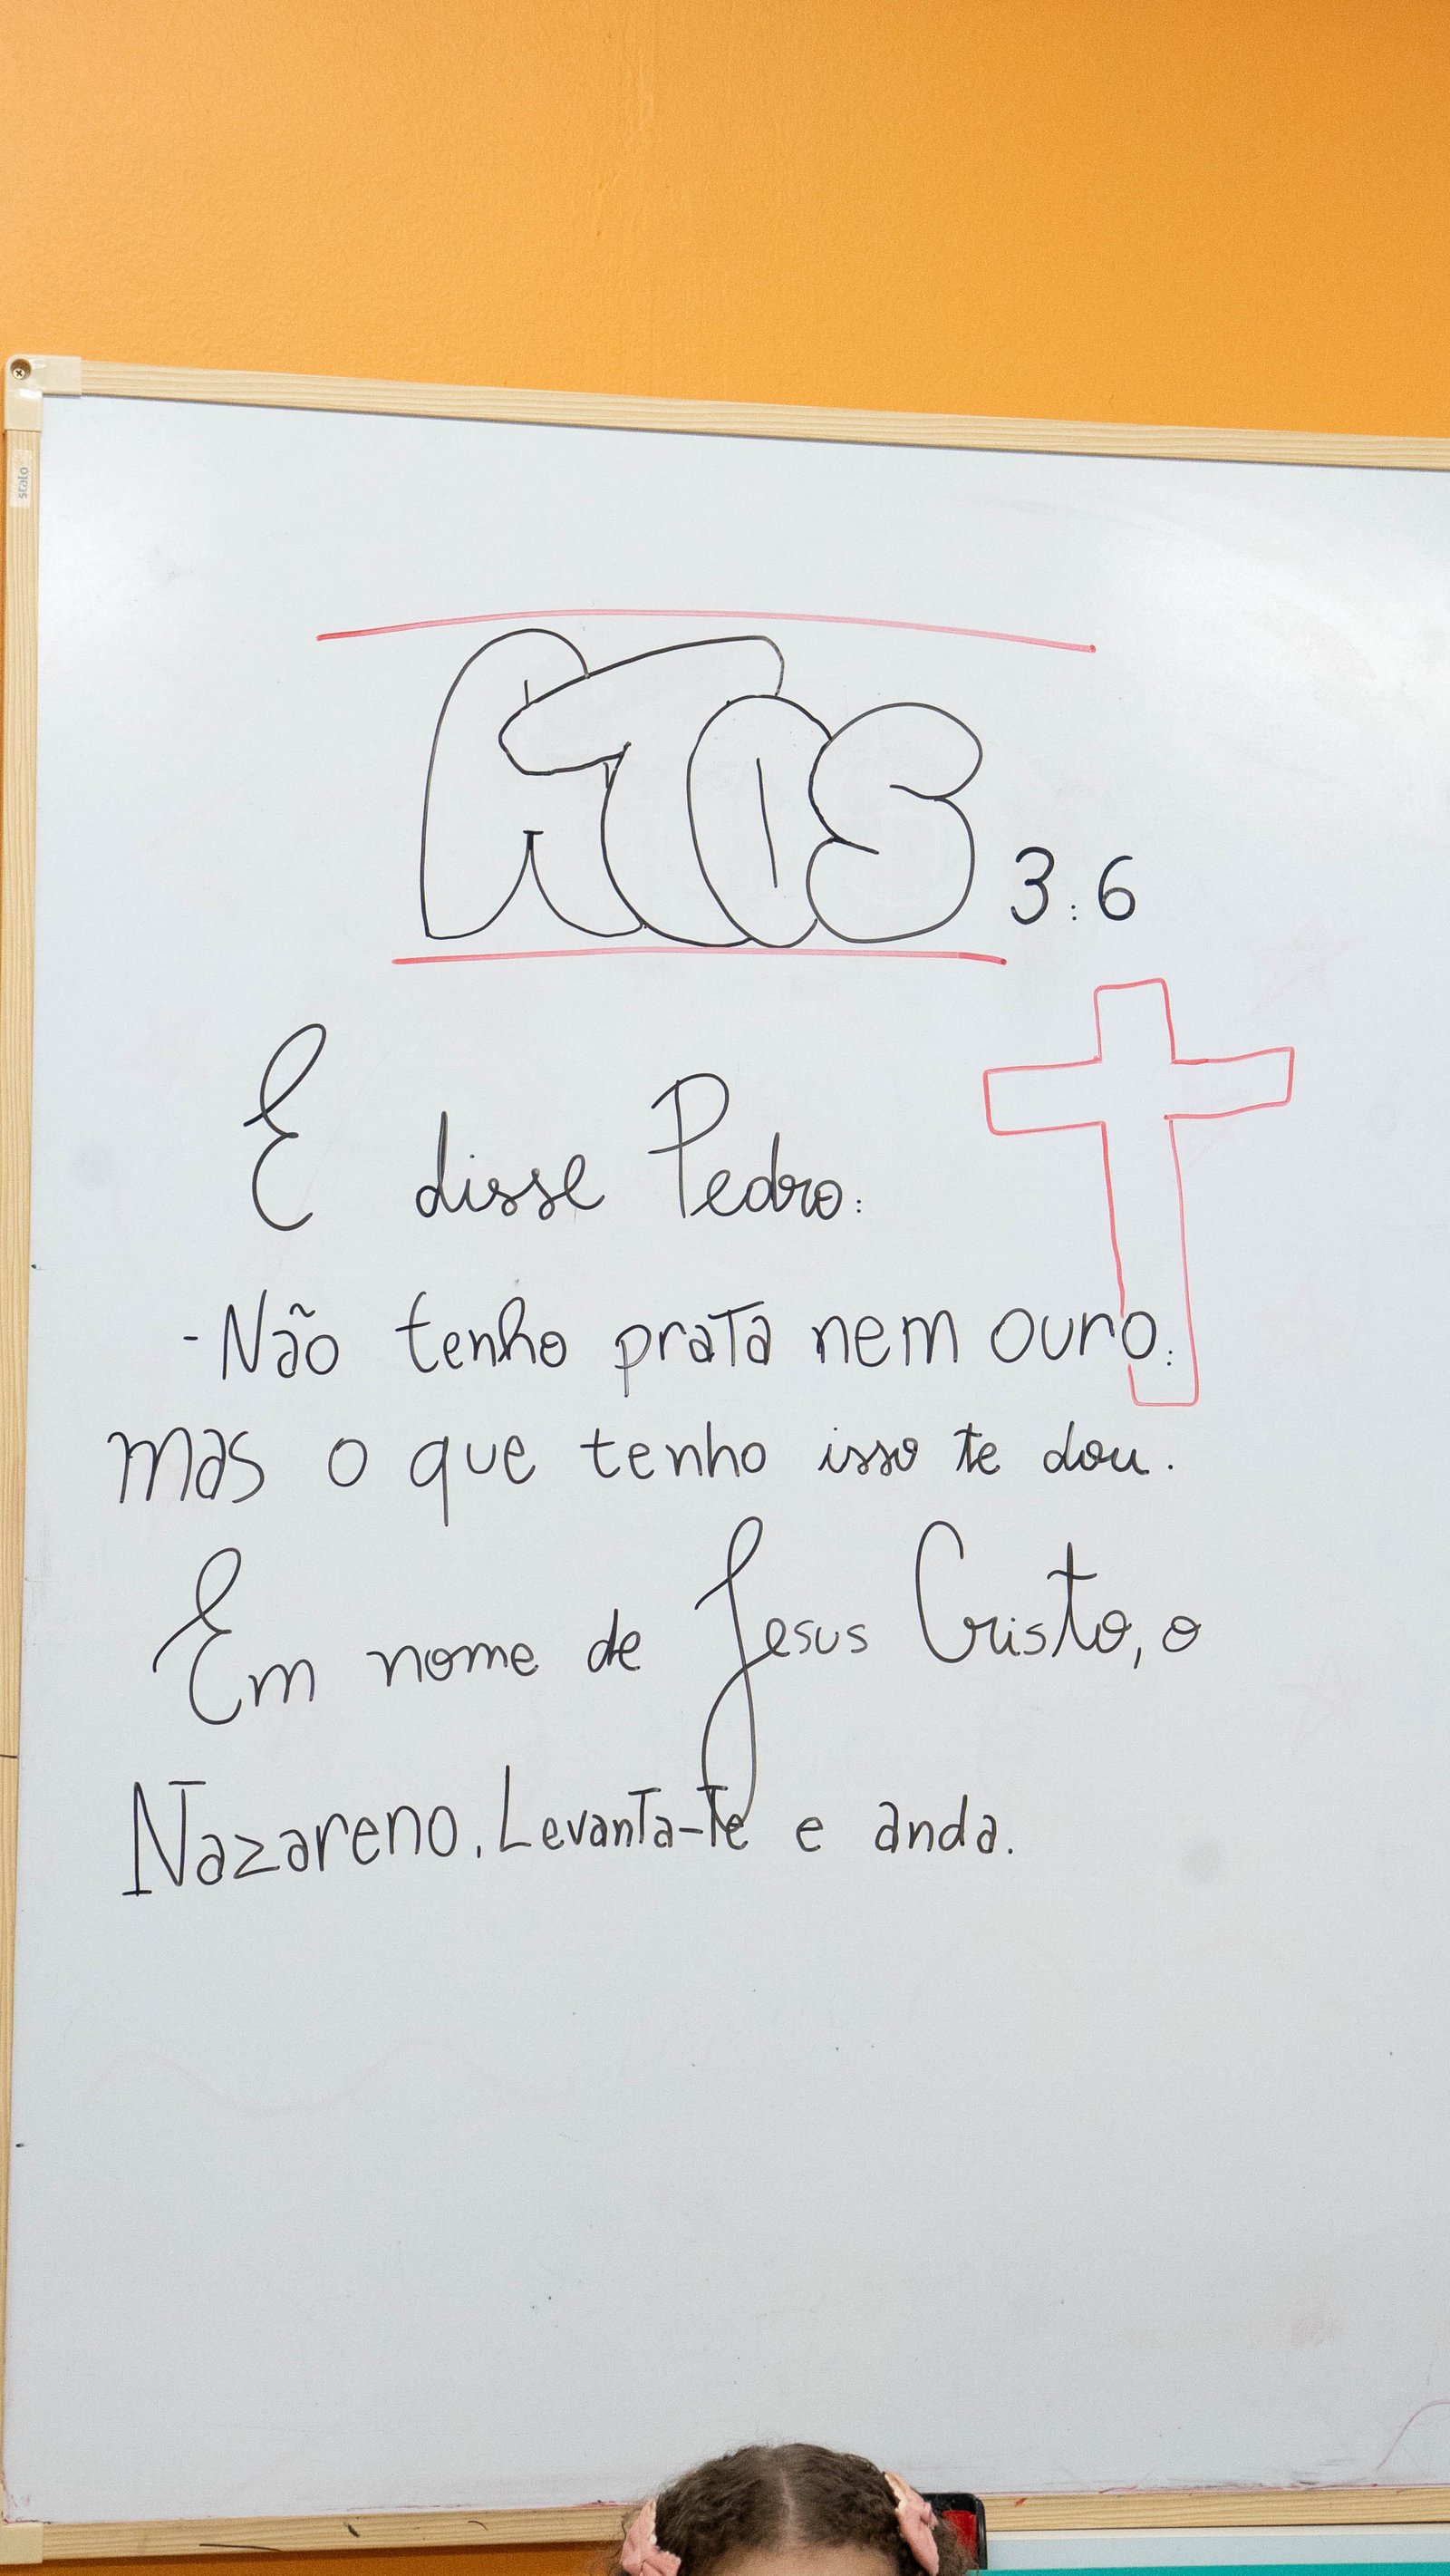 stalo
ATOS 3:6
E disse Pedro:
-Não tenho prata nem ouro:
mas o que tenho isso te dou.
Em nome de Jesus Cristo, o
Nazareno, Levanta-te e anda.